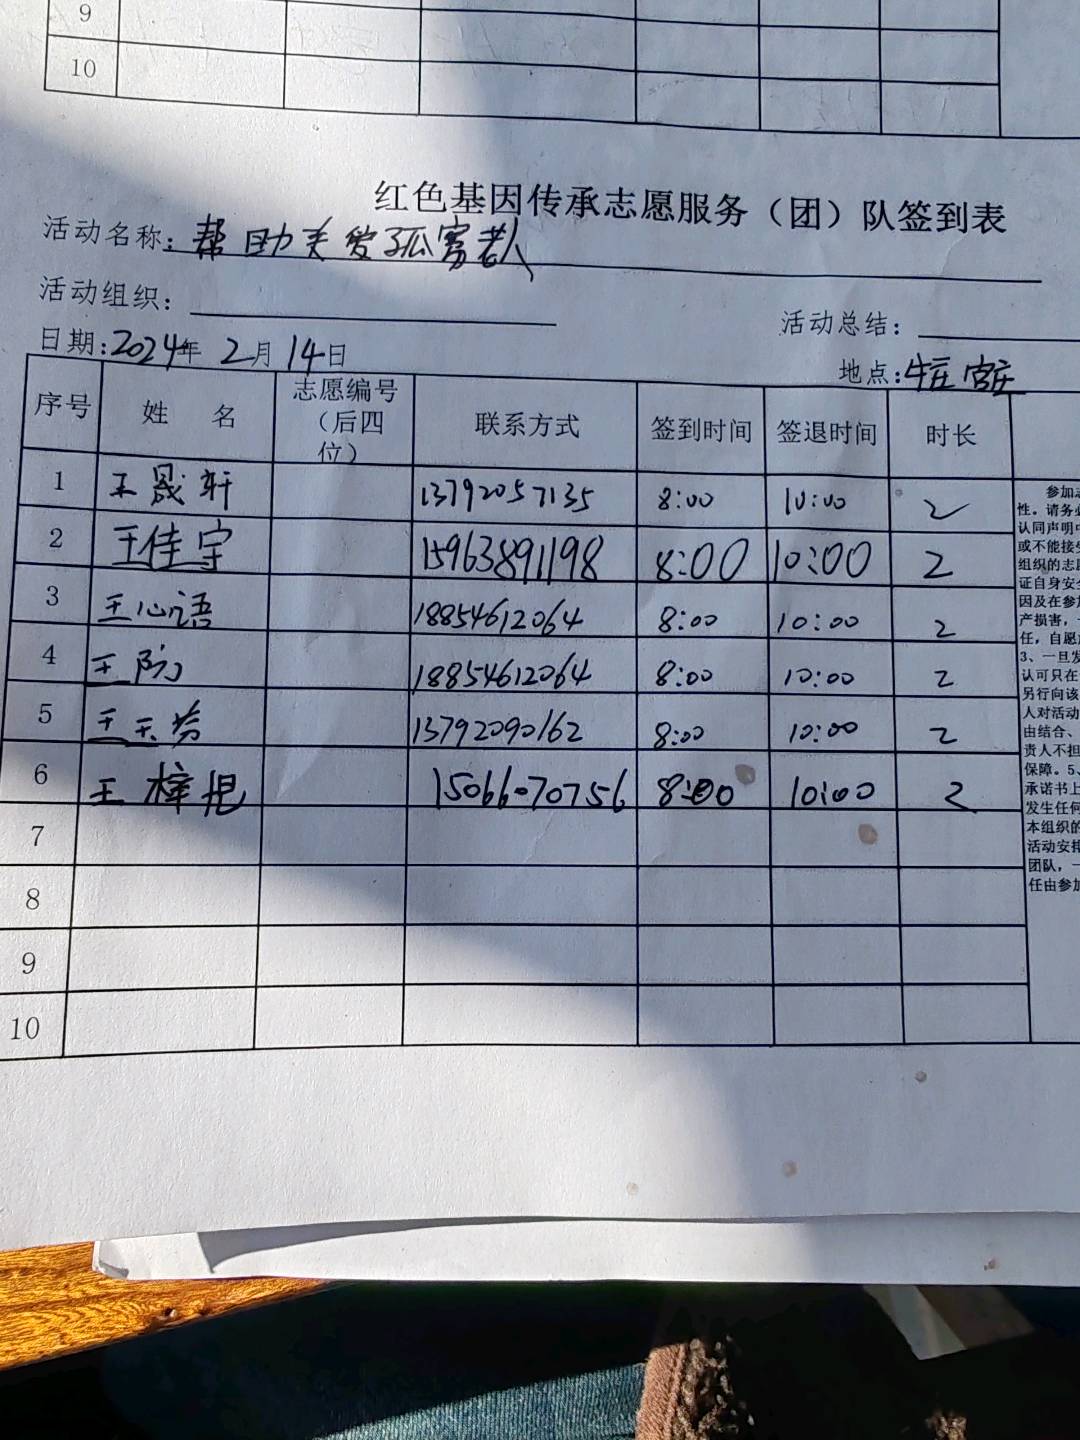 9
10
红色基因传承志愿服务（团）队签到表
活动名称：帮助关爱孤寡老人
活动组织：
活动总结：
日期：2024年 2月 14日
地点：
序号 姓 名 志愿编号（后四位） 联系方式 签到时间 签退时间 时长
1 王晟轩 13792057135 8:00 10:00 2
2 王佳宇 15963891198 8:00 10:00 2
3 王心语 18854612064 8:00 10:00 2
4 王 18854612064 8:00 10:00 2
5 王 13792090162 8:00 10:00 2
6 王梓 15066070756 8:00 10:00 2
7
8
9
10
参加志
性。请务必
认同声明中
或不能接受
组织的志愿
证自身安全
因及在参加
产损害，一
任，自愿
3、一旦发
认可只在
另行向该
人对活动
由结合、
责人不担
保障。5、
承诺书上
发生任何
本组织的
活动安排
团队，一
任由参加